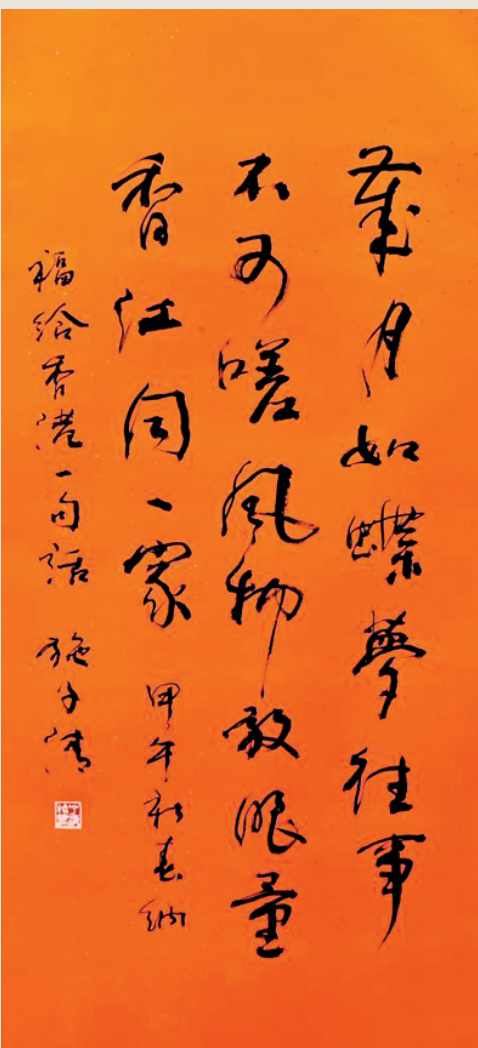 歲月如蝶夢往事
不可嗟風物放眼量
香江同一家 甲午新春納
福給香港一句話 施子清